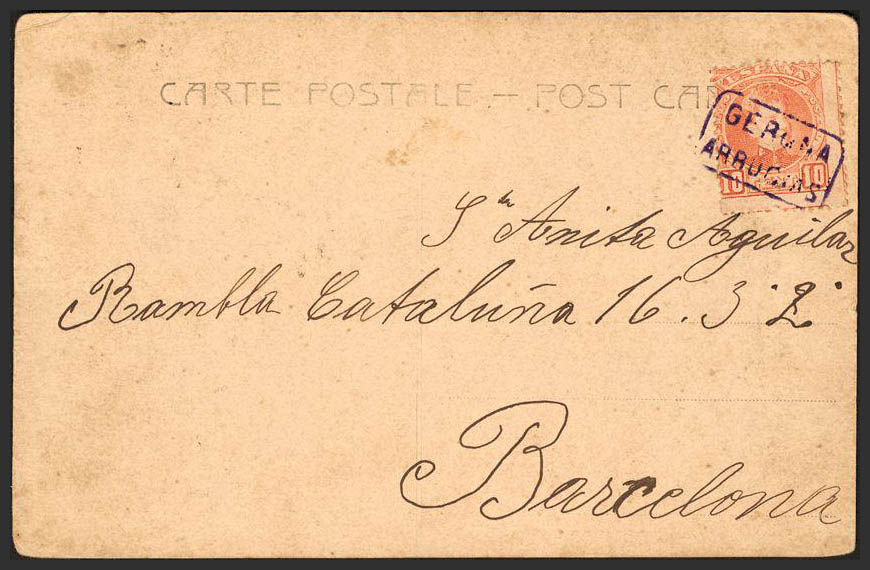 CARTE POSTALE — POST CAR
ESPAÑA
GERONA
ARBUCIAS
10 10
Sta Anita Aguilar
Rambla Cataluña 16. 3º 2º
Barcelona